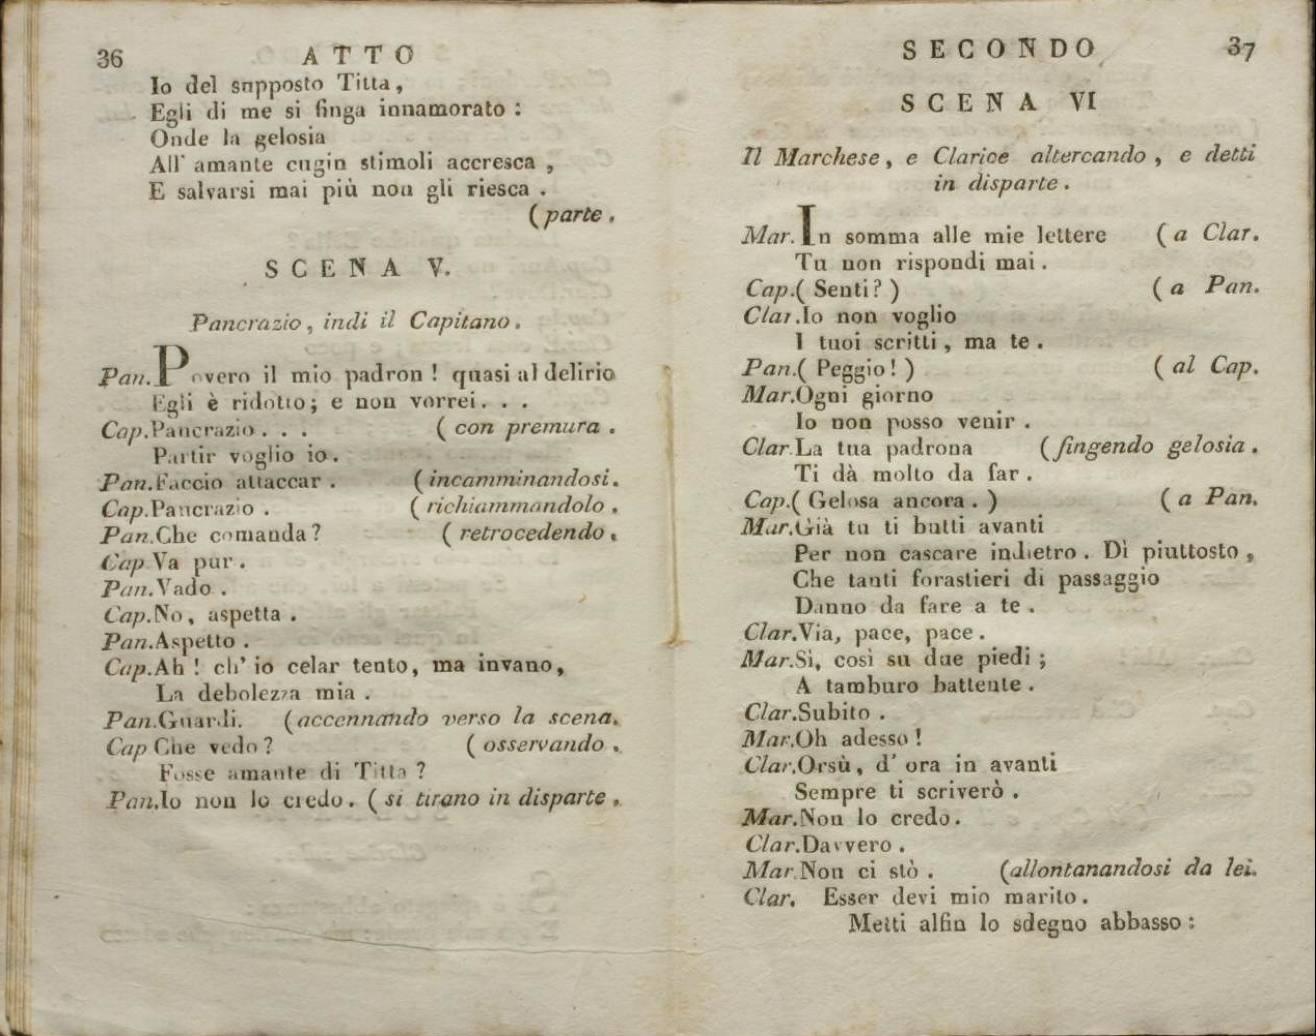 36 ATTO
Io del supposto Titta,
Egli di me si finga innamorato :
Onde la gelosia
All' amante cugin stimoli accresca ,
E salvarsi mai più non gli riesca .
( parte .
SCENA V.
Pancrazio, indi il Capitano.
Pan. Povero il mio padron ! quasi al delirio
Egli è ridotto; e non vorrei. . .
Cap. Pancrazio . . . ( con premura .
Partir voglio io.
Pan. Faccio attaccar . ( incamminandosi.
Cap. Pancrazio . ( richiammandolo .
Pan. Che comanda ? ( retrocedendo .
Cap Va pur .
Pan. Vado .
Cap. No, aspetta .
Pan. Aspetto .
Cap. Ah ! ch' io celar tento, ma invano,
La debolezza mia .
Pan. Guardi. (accennando verso la scena.
Cap Che vedo ? ( osservando .
Fosse amante di Titta ?
Pan. Io non lo credo. ( si tirano in disparte .
SECONDO 37
SCENA VI
Il Marchese, e Clarice altercando , e detti
in disparte .
Mar. In somma alle mie lettere ( a Clar.
Tu non rispondi mai .
Cap. ( Senti ? ) ( a Pan.
Clar. Io non voglio
I tuoi scritti , ma te .
Pan. ( Peggio ! ) ( al Cap.
Mar. Ogni giorno
Io non posso venir .
Clar. La tua padrona (fingendo gelosia .
Ti dà molto da far .
Cap. ( Gelosa ancora . ) ( a Pan.
Mar. Già tu ti butti avanti
Per non cascare indietro . Dì piuttosto ,
Che tanti forastieri di passaggio
Danno da fare a te .
Clar. Via, pace, pace .
Mar. Sì, così su due piedi ;
A tamburo battente .
Clar. Subito .
Mar. Oh adesso !
Clar. Orsù, d' ora in avanti
Sempre ti scriverò .
Mar. Non lo credo.
Clar. Davvero .
Mar. Non ci stò . (allontanandosi da lei.
Clar. Esser devi mio marito .
Metti alfin lo sdegno abbasso :